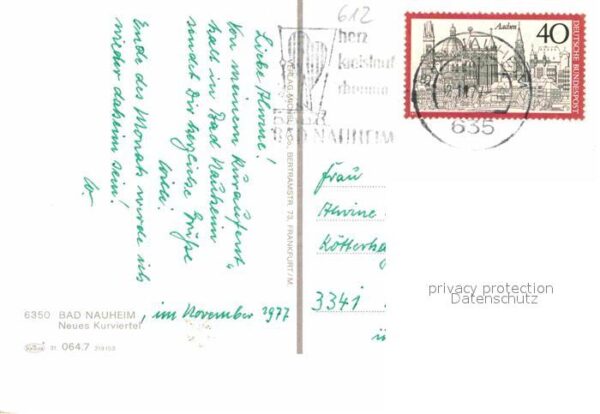 Liebe Alwine!
Von meinem Kuraufent-
halt in Bad Nauheim
sendet Dir herzliche Grüße
Ende des Monats werde ich
wieder daheim sein!
6350 BAD NAUHEIM, im November 1977
Neues Kurviertel
31 064.7
VERLAG MICHEL & CO., BERTRAMSTR. 73, FRANKFURT/M.
612
herz
kreislauf
rheuma
BAD NAUHEIM
635
Aachen
40
DEUTSCHE BUNDESPOST
Frau
Alwine
3341
privacy protection
Datenschutz